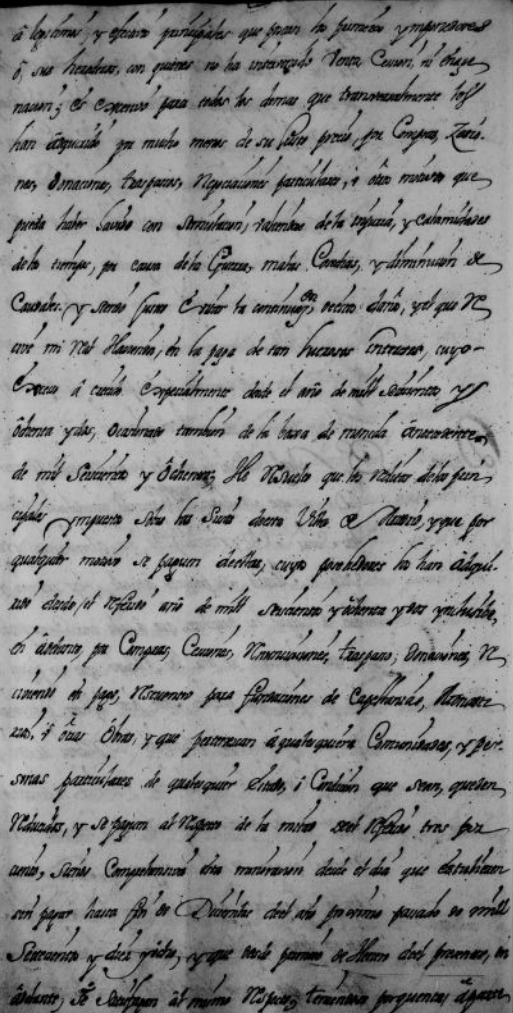 â lexitimos, y efectivos principales que ponen los primeros ymponedores
ô, sus herederos, con quienes no ha intervenido Venta, Cecion, ni enage
nacion; es expresivo para todos los demas que transversalmente los
han adquirido por mucho menos de su justo precio, por Compras, Zecio
nes, Donaciones, traspasos, Negociaciones particulares, i ôtros motivos que
pueda haber havido con simulacion, validos de la injuria, y calamidades
de los tiempos, por causa de la Guerra, malas Cosechas, y diminucion de
Caudales. y siendo justo evitar la continuacion en tanto daño, y el que Re
cive mi Real Hacienda, en la paga de tan Intereses, cuyo
exceso â crecido especialmente desde el año de mill seiscientos y
ôchenta y dos, ocasionado tambien de la baxa de moneda
de mil Seiscientos y ôchenta; He Resuelto que los Reditos de los prin
cipales ympuestos sobre las Sisas de esta Villa de Madrid, y que por
qualquier motivo se paguen de ellas, cuyos poseedores los han âdqui-
rido desde el referido año de mill seiscientos y ôchenta y dos ynclusive,
en âdelante, por Compras, Ceciones, traspasos, Donaciones, Re
en pagos, para fundaciones de Capellanias,
i ôtras ôbras, y que pertenezcan â qualesquiera Comunidades, y per-
sonas particulares de qualesquier estado, i Condicion que sean, queden
Reducidos, y se paguen al Respecto de la mitad del Referido tres por
ciento, siendo esta minoracion desde el dia que estubieren
sin pagar hasta fin de Diziembre del año proximo pasado de mill
Setecientos y diez y ocho, y que desde primero de Henero del presente, en
âdelante, se satisfagan al mismo Respecto; teniendose por quenta